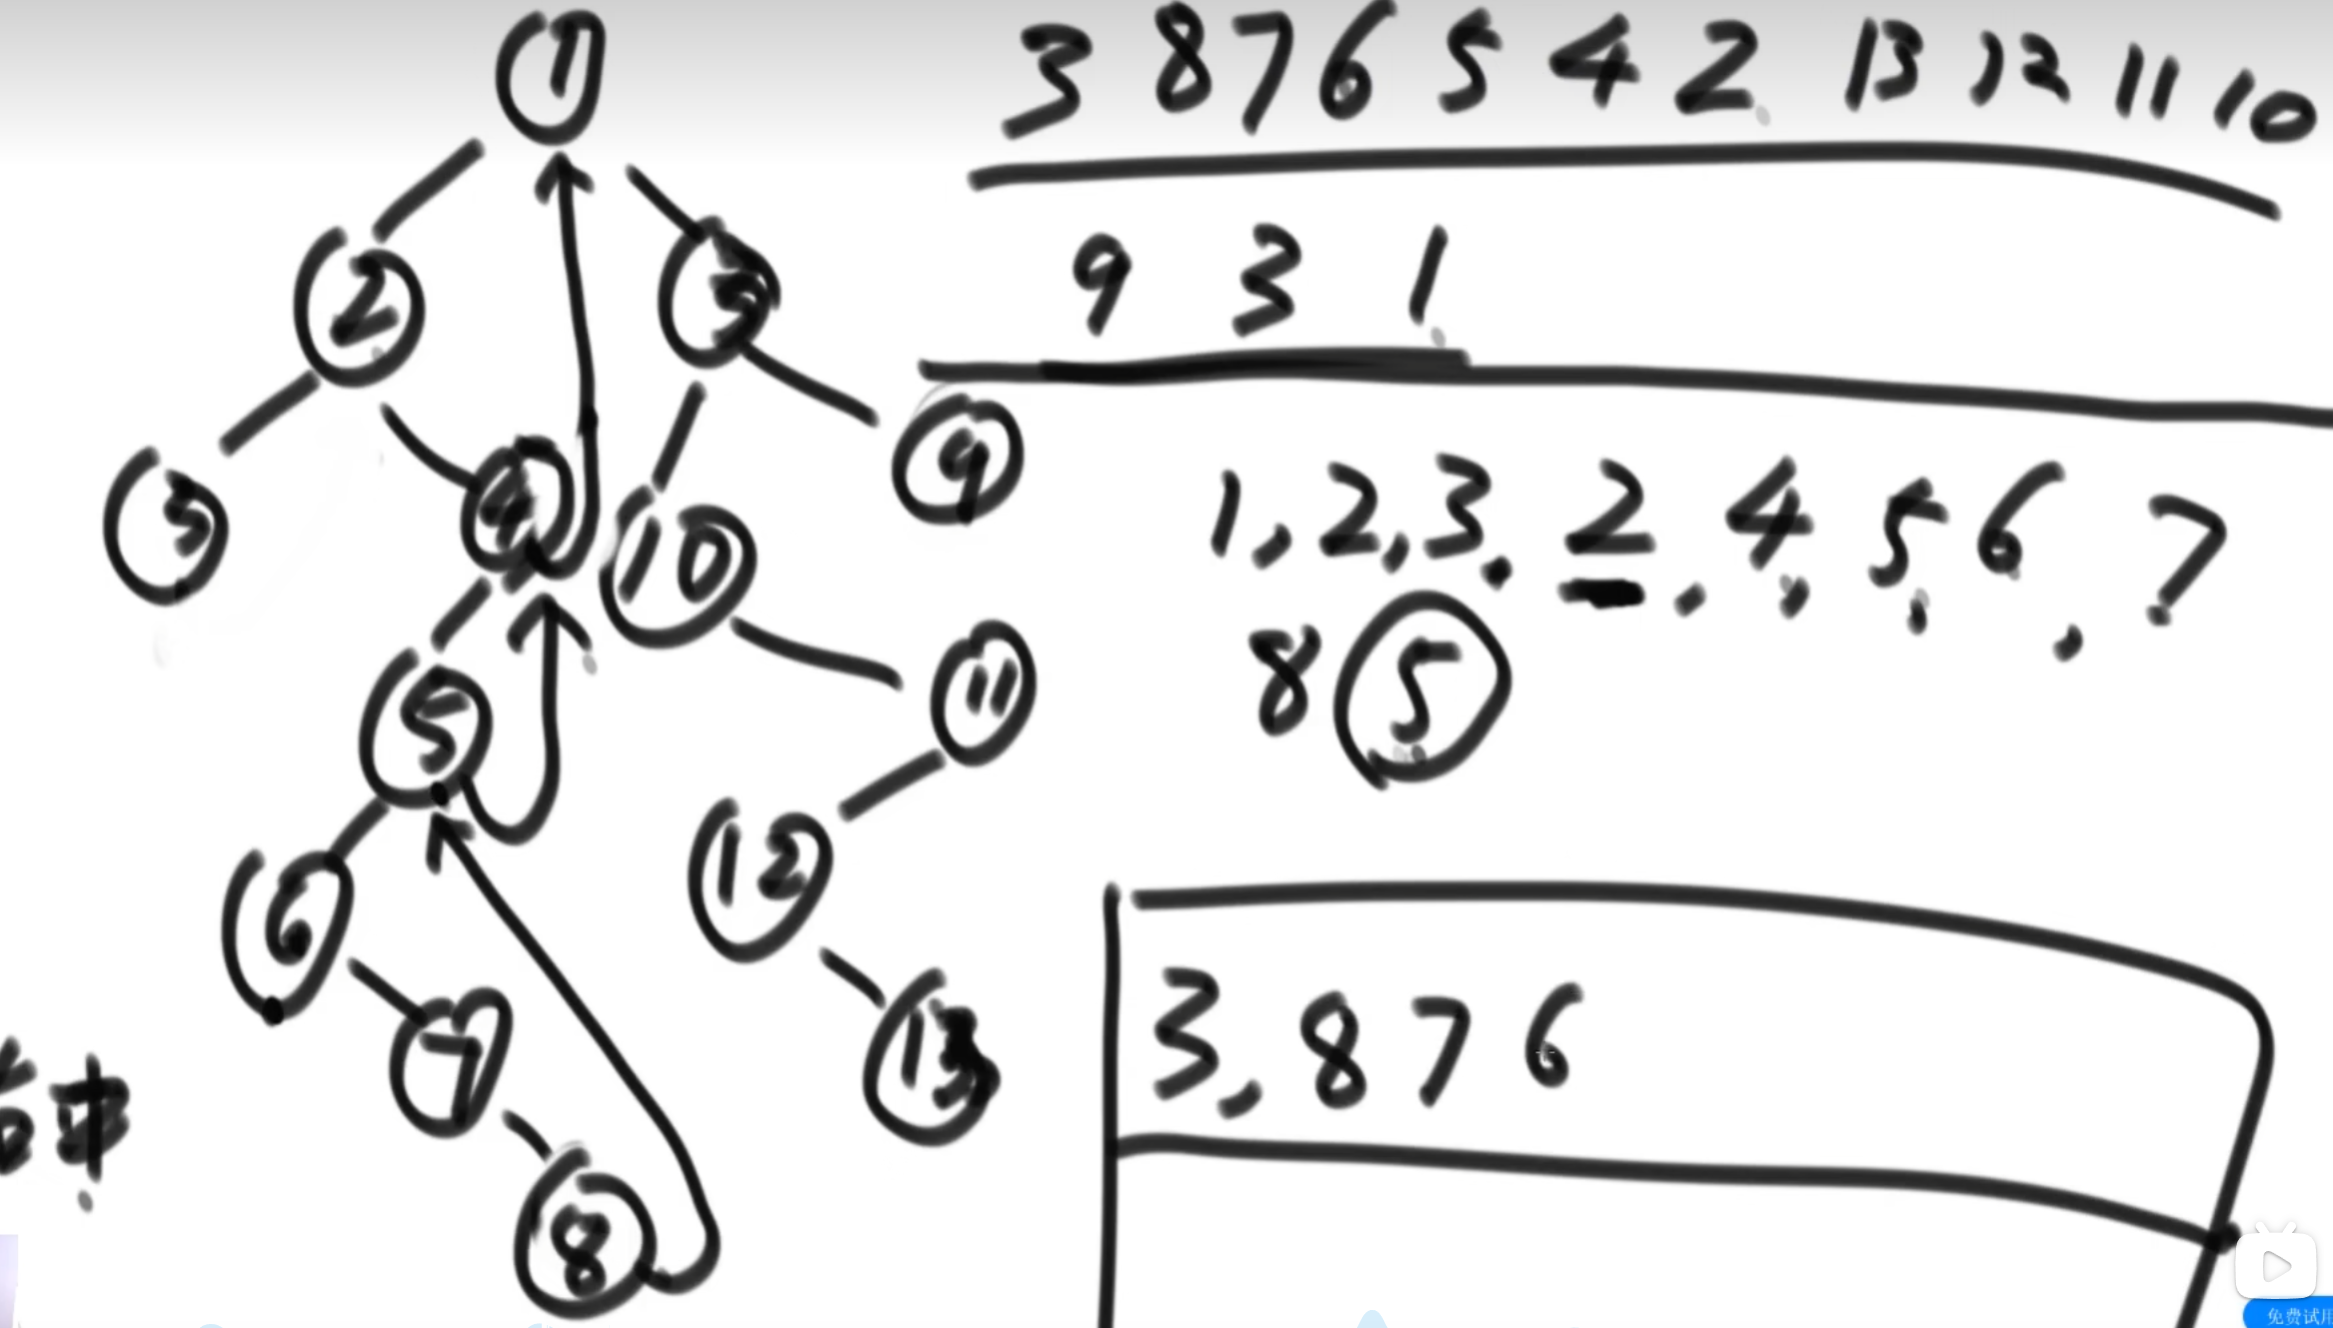 1
2 3
3 4 10 9
5 11
6 12
7 13
8
3 8 7 6 5 4 2 13 12 11 10
9 3 1
1, 2, 3. 2, 4, 5, 6, 7
8 5
3, 8 7 6
免费试用